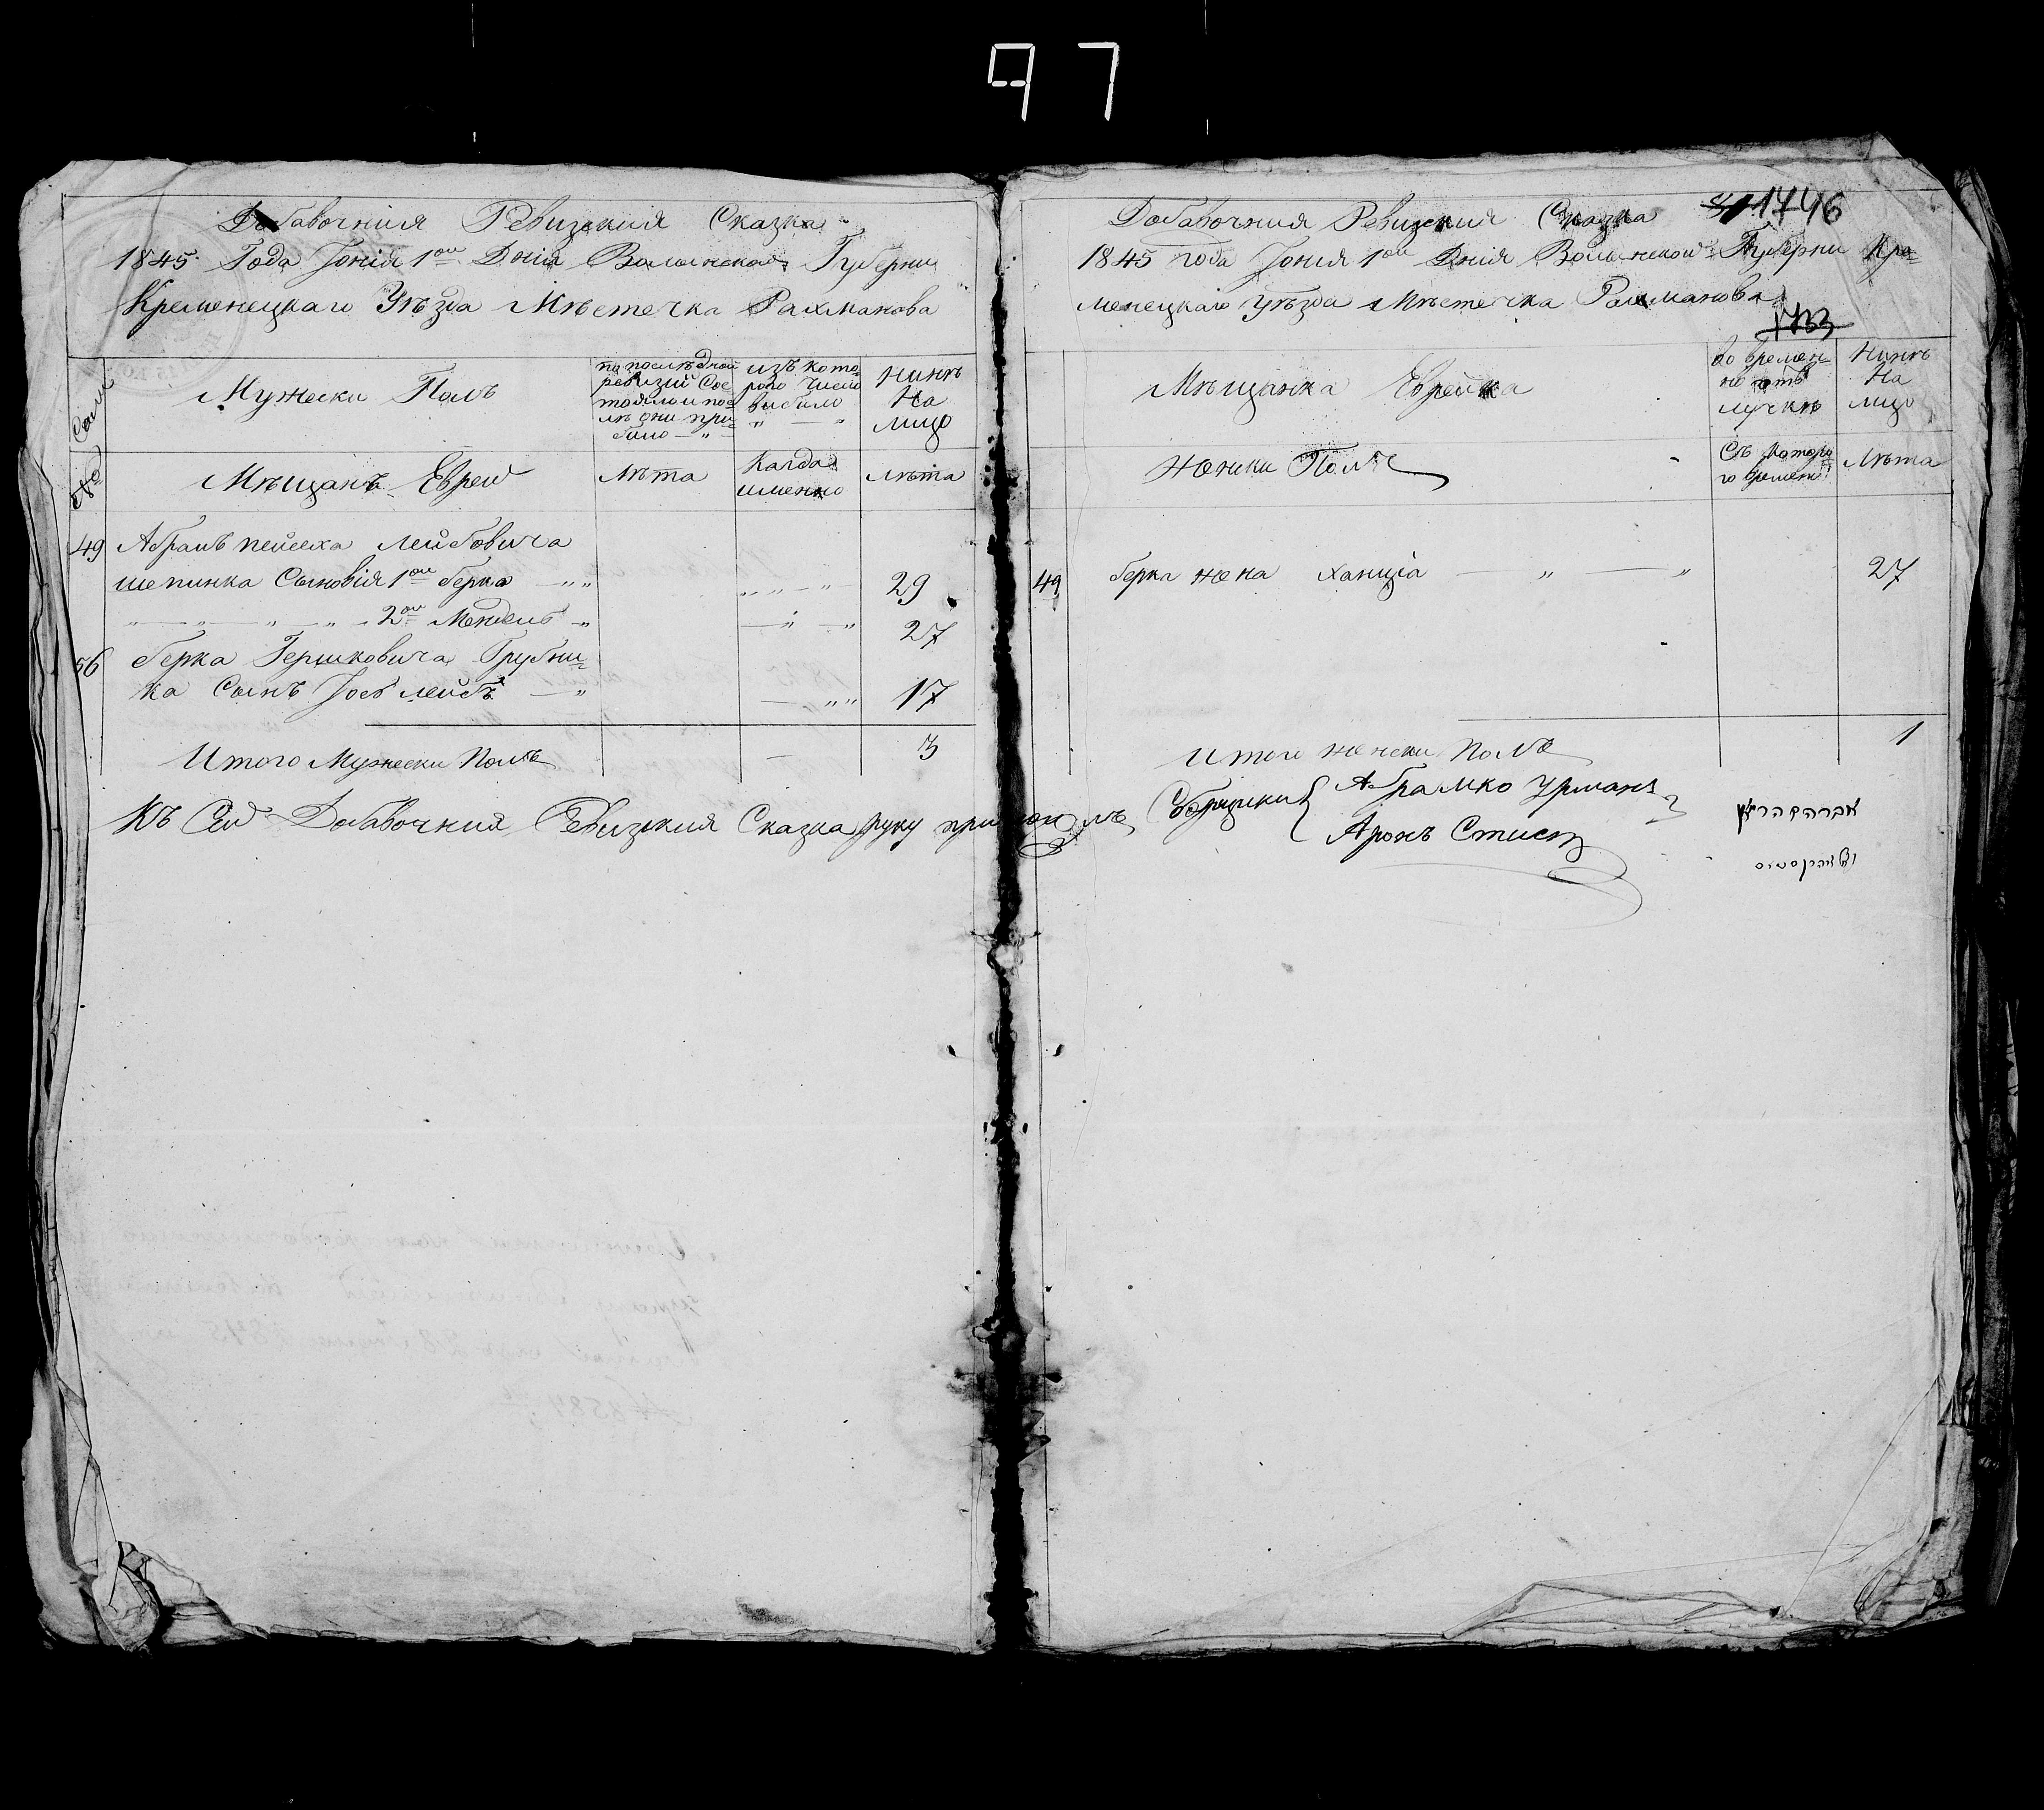 97
Добавочния Ревизския Сказка
1845 Года Јюнія 1ои Днія Волынской Губерни
Кременецкаго Уѣзда Мѣстечка Рахманова
Мужески Полъ
попослѣдной ревизіи Сос тоялои пос лѣ они при было
изъ кото рого число выбыло
Нинѣ На лицо
Мѣщанъ Еврей
Лѣта
Когда именно
Лѣта
49 Абрамъ пейсеха Лейбовича
шепинка Сыновія 1ои берко 29
2ои Мендель 27
56 берка Гершковича Грубни
ка Сынъ Јось лейбъ 17
Итого Мужески Полъ 3
Къ Сей Добавочния Ревизския Сказка руку приложилъ
1746
Добавочния Ревизския Сказка
1845 года Јюнія 1ои Днія Волынской Губерни Кре
менецкаго Уѣзда Мѣстечка Рахманова
1733
Мѣщанка Еврейка
во времен но отъ лучкѣ
Нинѣ На лицо
Женски Полъ
Съ которо го времени
Лѣта
49 берка жена ханція 27
Итого женски Полъ 1
Сборщики Абрамко Урманъ
Аронъ Стись